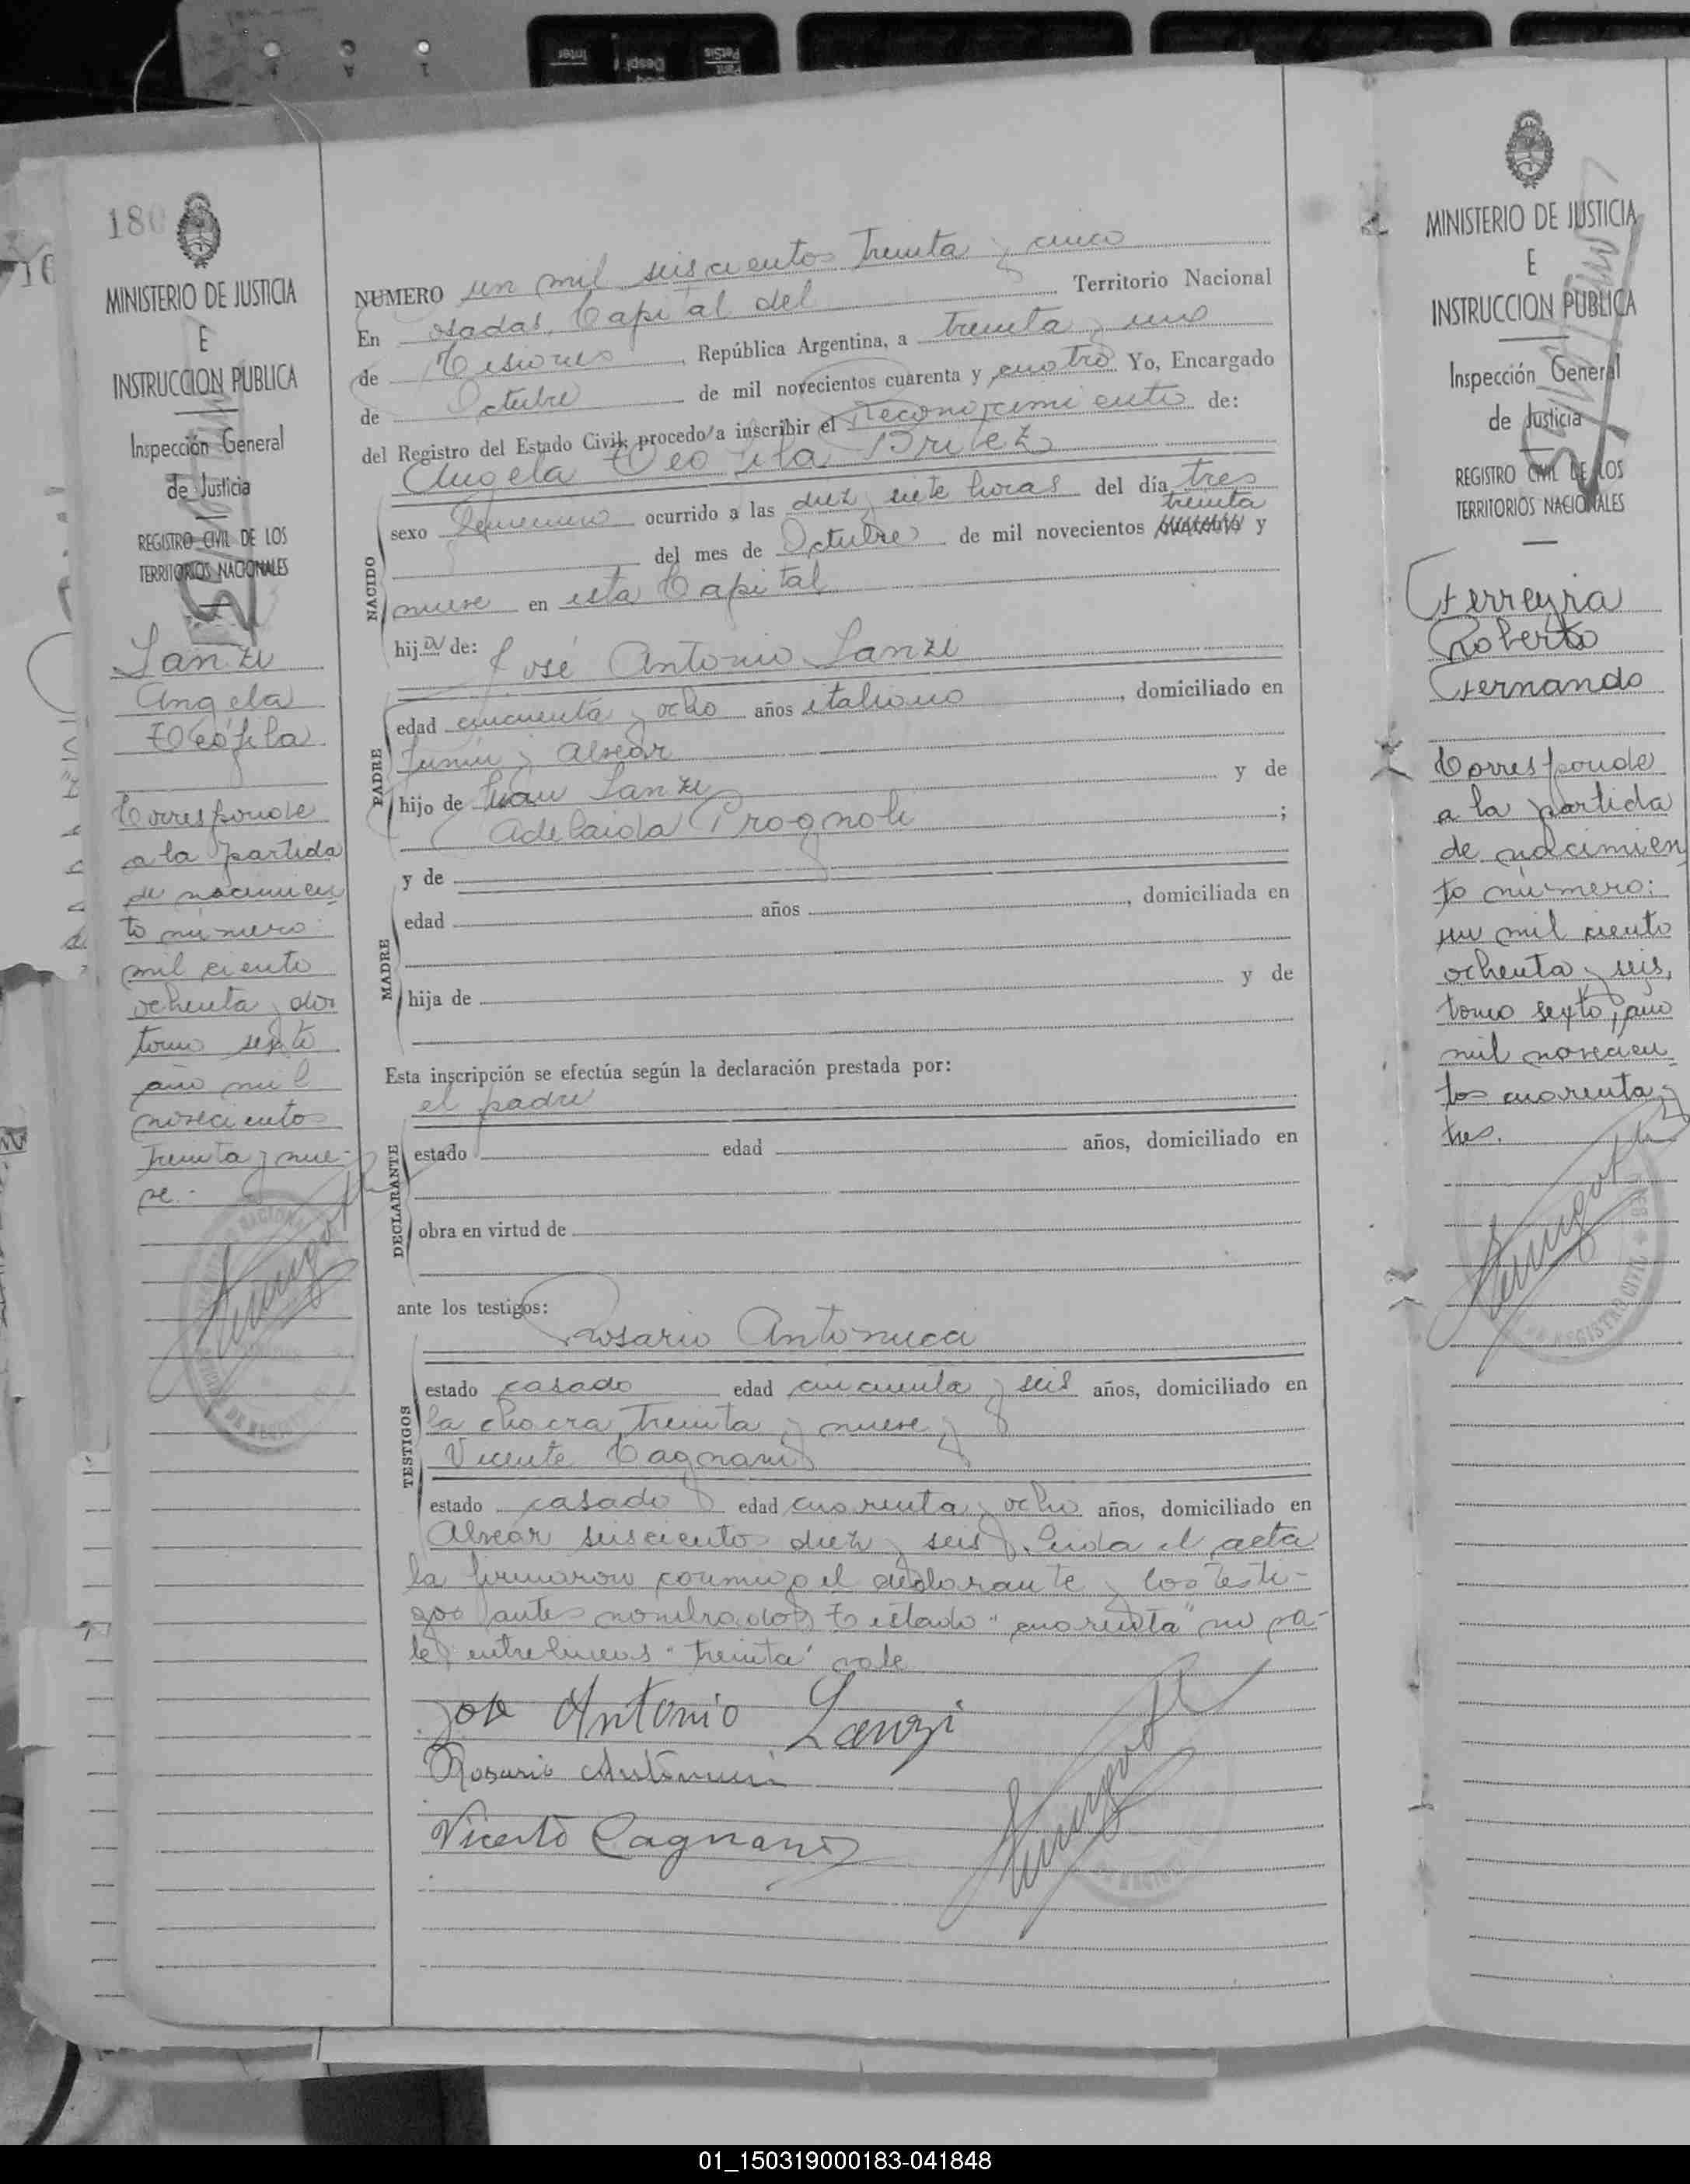 180
MINISTERIO DE JUSTICIA
E
INSTRUCCION PUBLICA
Inspección General
de Justicia
REGISTRO CIVIL DE LOS
TERRITORIOS NACIONALES
Lanzi
Angela
Teófila
Corresponde
a la partida
de nacimien
to número:
mil ciento
ochenta y dos
tomo sexto
año mil
novecientos
treinta y nue-
ve.-
NUMERO un mil seiscientos treinta y cinco
En osadas, Capital del Territorio Nacional
de Misiones, República Argentina, a treinta y uno
de Octubre de mil novecientos cuarenta y cuatro Yo, Encargado
del Registro del Estado Civil, procedo a inscribir el Reconocimiento de:
Angela Teofila Britez
NACIDO
sexo femenino ocurrido a las diez y siete horas del día tres
treinta
del mes de Octubre de mil novecientos cuarenta y
nueve en esta Capital
hija de: José Antonio Lanzi
PADRE
edad cincuenta y ocho años italiano, domiciliado en
Junín y Alvear
hijo de Juan Lanzi y de
Adelaida Prognoli ;
MADRE
y de
edad años, domiciliada en
hija de y de
Esta inscripción se efectúa según la declaración prestada por:
el padre
DECLARANTE
estado edad años, domiciliado en
obra en virtud de
ante los testigos:
Rosario Antonuca
TESTIGOS
estado casado edad cincuenta y seis años, domiciliado en
la chacra treinta y nueve y
Vicente Cagnani
estado casado edad cuarenta y ocho años, domiciliado en
Alvear seiscientos diez y seis. Leida el acta
la firmaron conmigo el declarante y los testi-
gos antes nombrados. Testado "cuarenta" no va-
le, entrelineas "treinta" vale
José Antonio Lanzi
Rosario
Vicente Cagnani
MINISTERIO DE JUSTICIA
E
INSTRUCCION PUBLICA
Inspección General
de Justicia
REGISTRO CIVIL DE LOS
TERRITORIOS NACIONALES
Ferreyra
Roberto
Fernando
Corresponde
a la partida
de nacimien
to número:
un mil ciento
ochenta y seis,
tomo sexto, año
mil novecien
tos cuarenta y
tres.
01_150319000183-041848